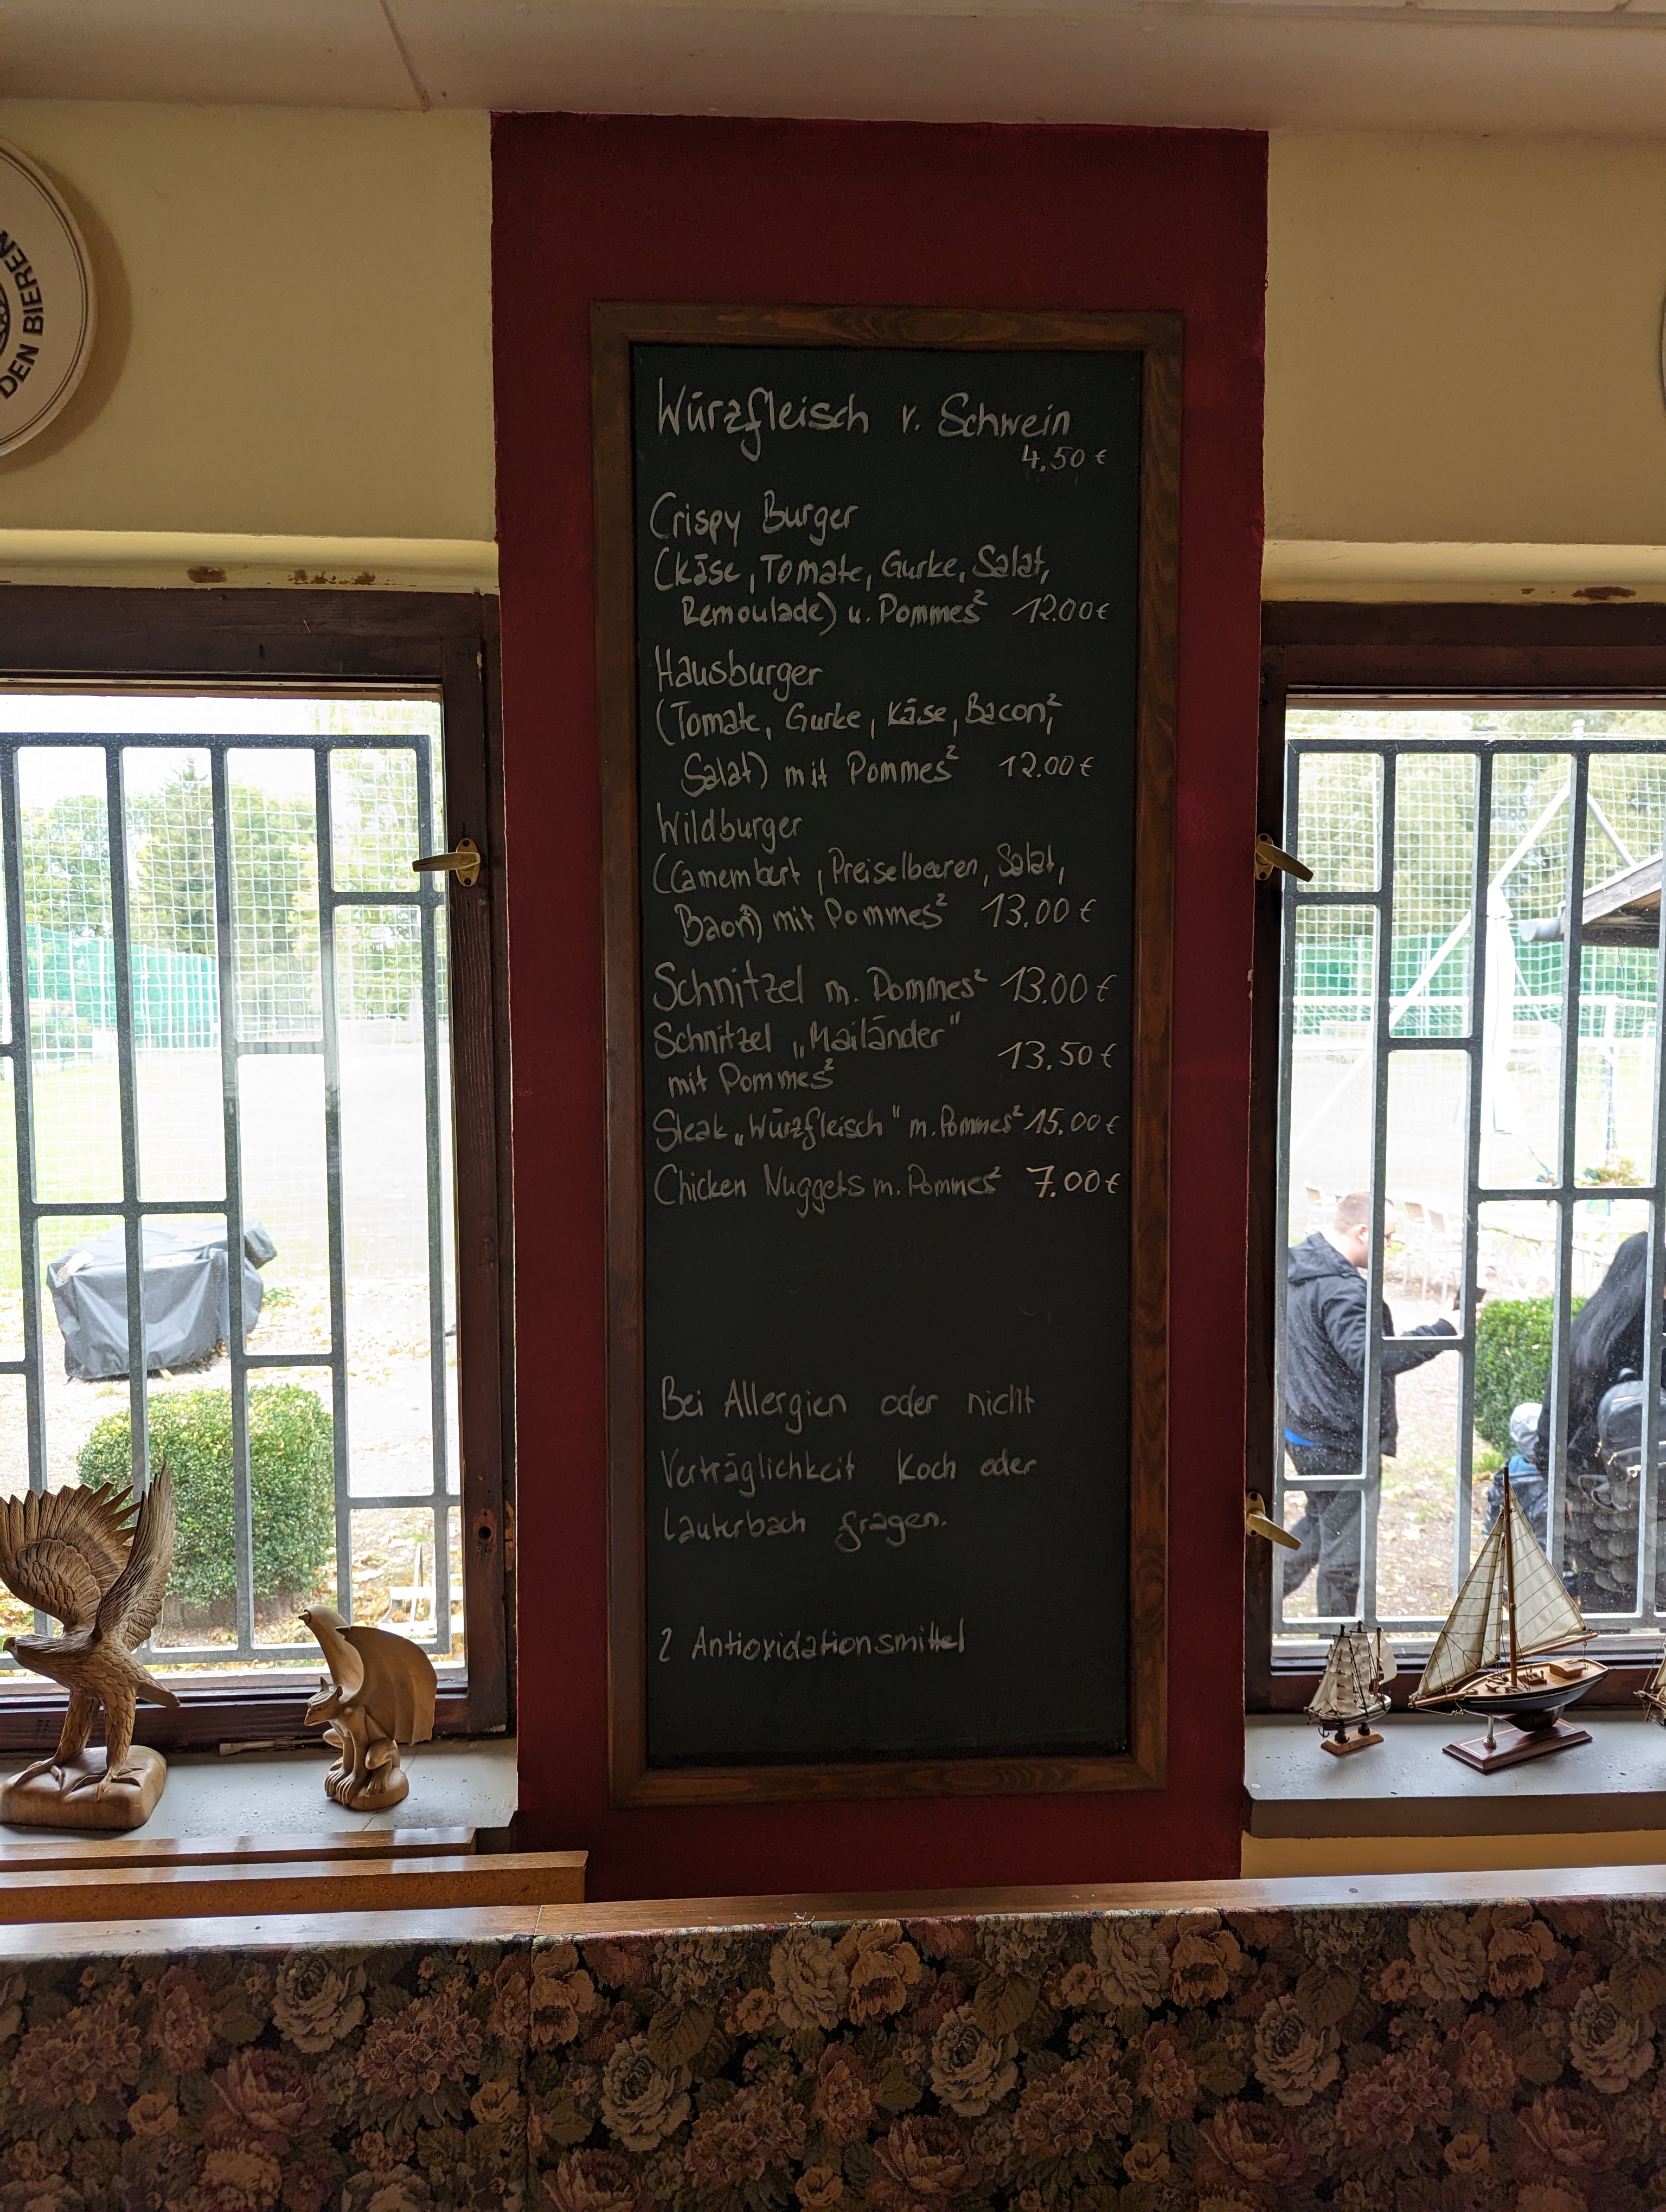 DEN BIEREN
Würzfleisch v. Schwein
4,50 €
Crispy Burger
(Käse, Tomate, Gurke, Salat,
Remoulade) u. Pommes² 12.00 €
Hausburger
(Tomate, Gurke, Käse, Bacon²,
Salat) mit Pommes² 12.00 €
Wildburger
(Camembert, Preiselbeeren, Salat,
Baon²) mit Pommes² 13.00 €
Schnitzel m. Pommes² 13.00 €
Schnitzel „Mailänder"
mit Pommes² 13.50 €
Steak „Würzfleisch" m. Pommes² 15.00 €
Chicken Nuggets m. Pommes² 7.00 €
Bei Allergien oder nicht
Verträglichkeit Koch oder
Lauterbach fragen.
2 Antioxidationsmittel